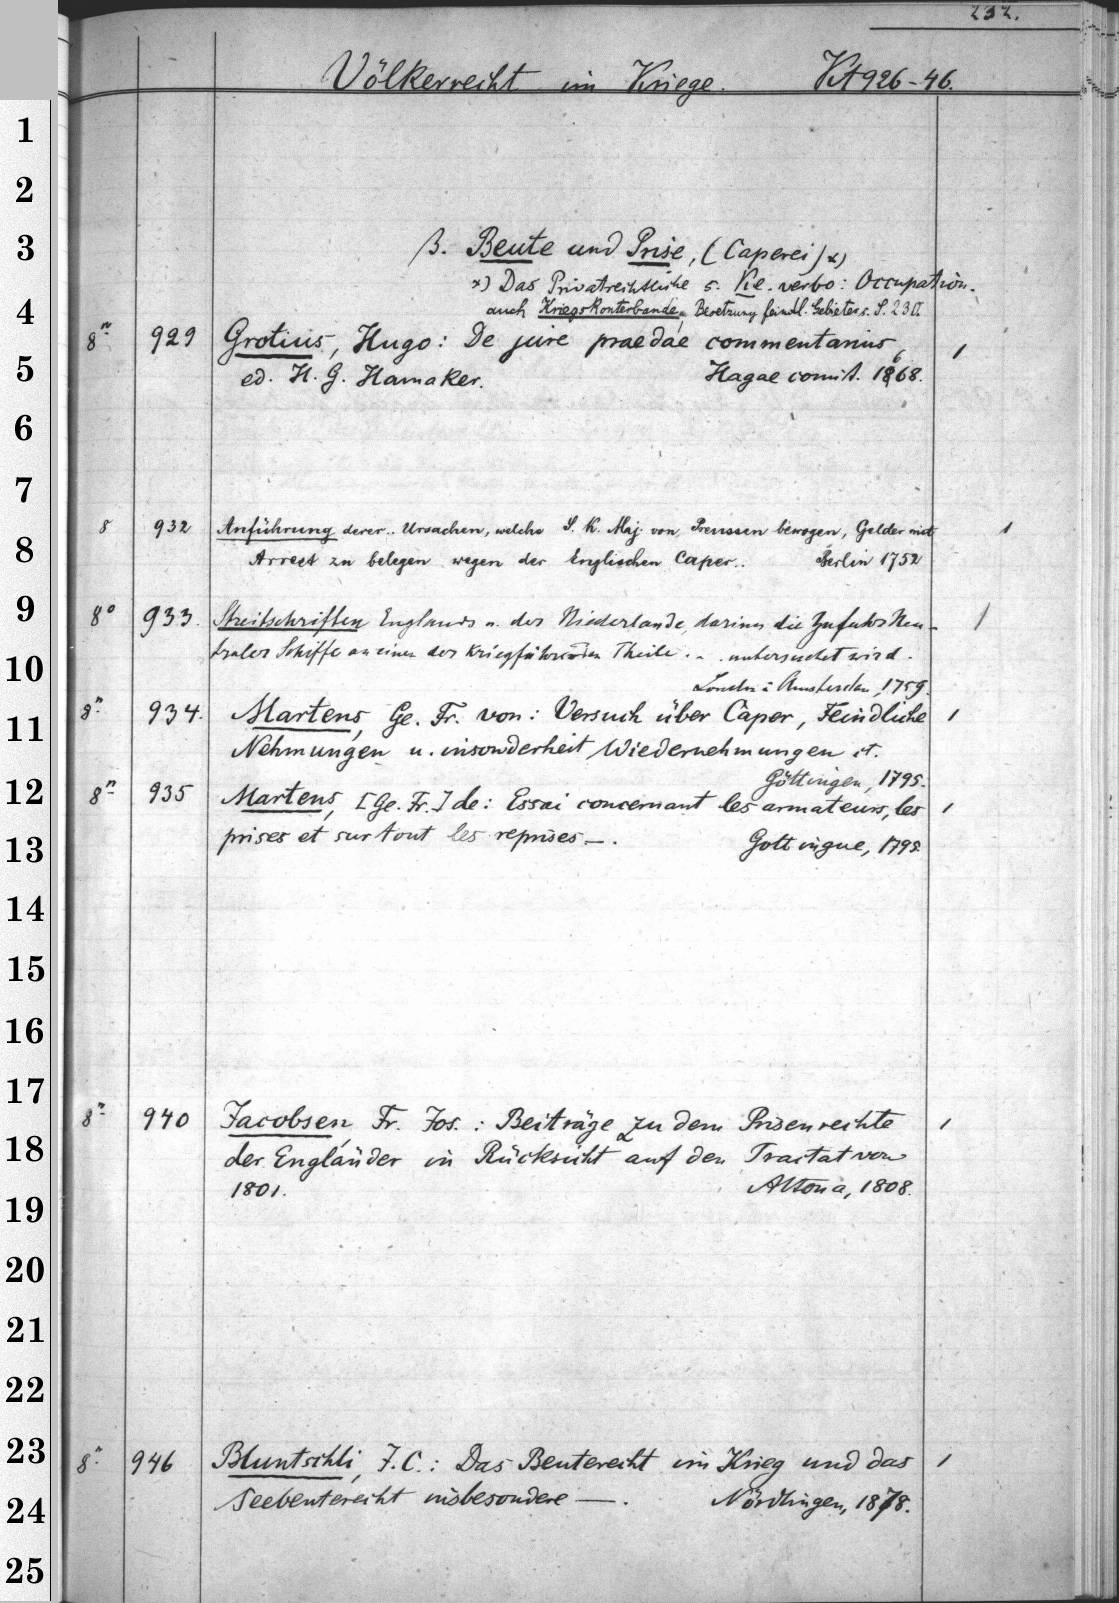 232.
Völkerrecht im Kriege. Kt 926-46.
1
2
3
β. Beute und Prise, (Caperei) x)
x) Das Privatrechtliche s. Kie. verbo: Occupation.
4
auch Kriegskonterbande, Besetzung feindl. Gebietes s. S. 230.
8° 929 Grotius, Hugo: De jure praedae commentarius, 1
5
ed. H. G. Hamaker. Hagae comit. 1868.
6
7
8 932 Anführung derer.. Ursachen, welche S. K. Maj. von Preussen bewogen, Gelder mit 1
8
Arrest zu belegen wegen der Englischen Caper.. Berlin 1752
9
8° 933. Streitschriften Englands u. der Niederlande, darinn die Zufuhr Neu- 1
10
traler Schiffe an einen der kriegführenden Theile . . . untersuchet wird.
London u Amsterdam, 1759.
11
8° 934. Martens, Ge. Fr. von: Versuch über Caper, Feindliche 1
Nehmungen u. insonderheit Wiedernehmungen et.
Göttingen, 1795.
12
8° 935 Martens, [Ge. Fr.] de: Essai concernant les armateurs, les 1
13
prises et surtout les reprises —. Gottingue, 1795.
14
15
16
17
8° 940 Jacobsen, Fr. Jos. : Beiträge zu dem Prisenrechte 1
18
der Engländer in Rücksicht auf den Tractat von
19
1801. Altona, 1808.
20
21
22
23
8° 946 Bluntschli, J. C.: Das Beuterecht im Krieg und das 1
24
Seebeuterecht insbesondere —. Nördlingen, 1878.
25